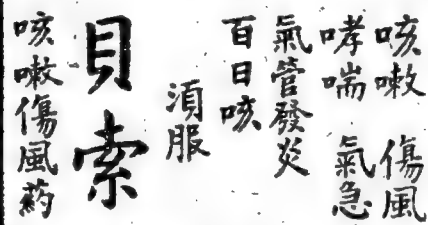 咳嗽 傷風
哮喘 氣急
氣管發炎
百日咳
須服
貝索
咳嗽傷風葯